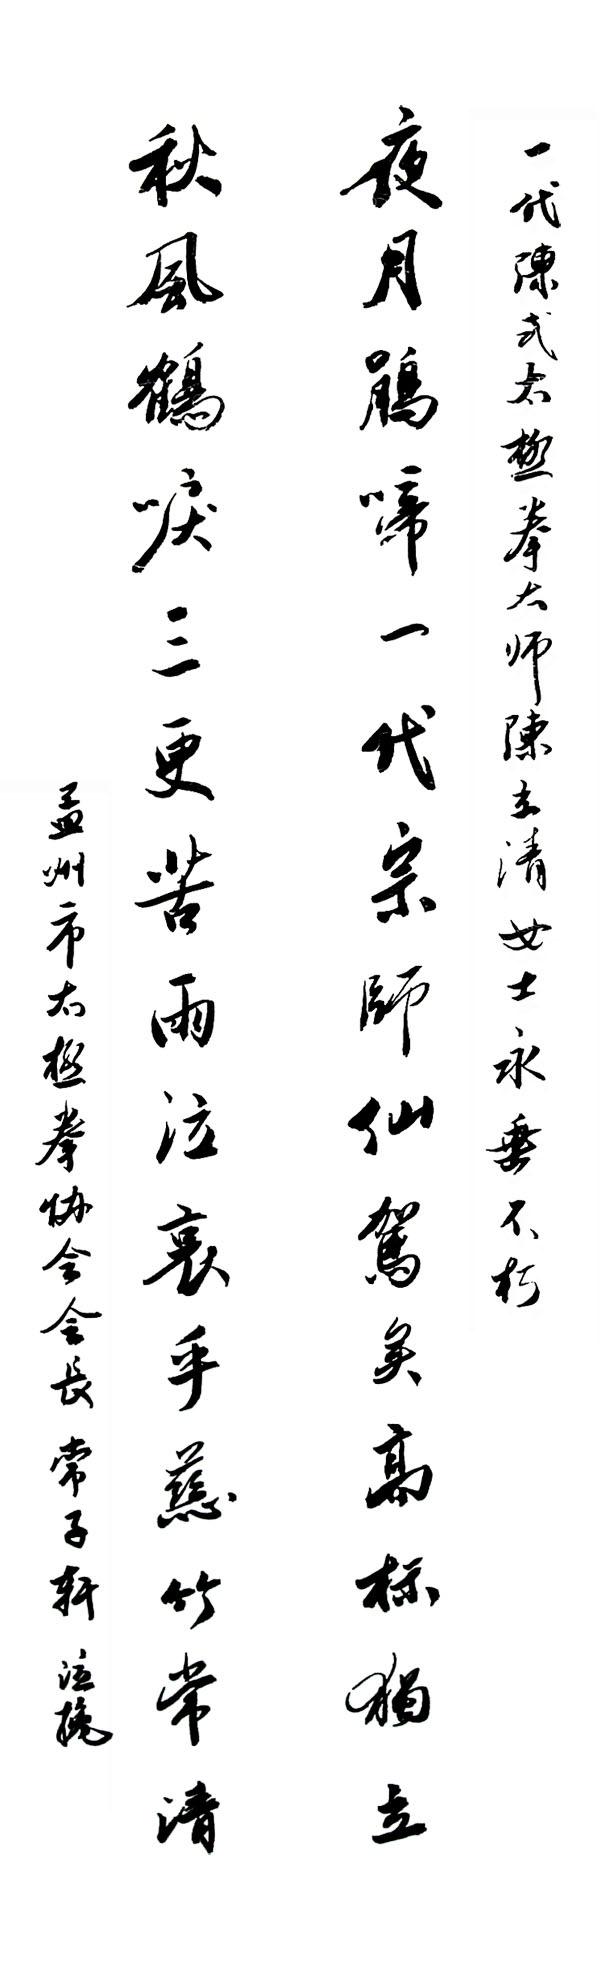 一代陳式太極拳大师陳立清女士永垂不朽
夜月鵑啼一代宗師仙駕矣高標獨立
秋風鶴唳三更苦雨泣哀乎慈竹常清
孟州市太極拳协会会長常子軒泣挽